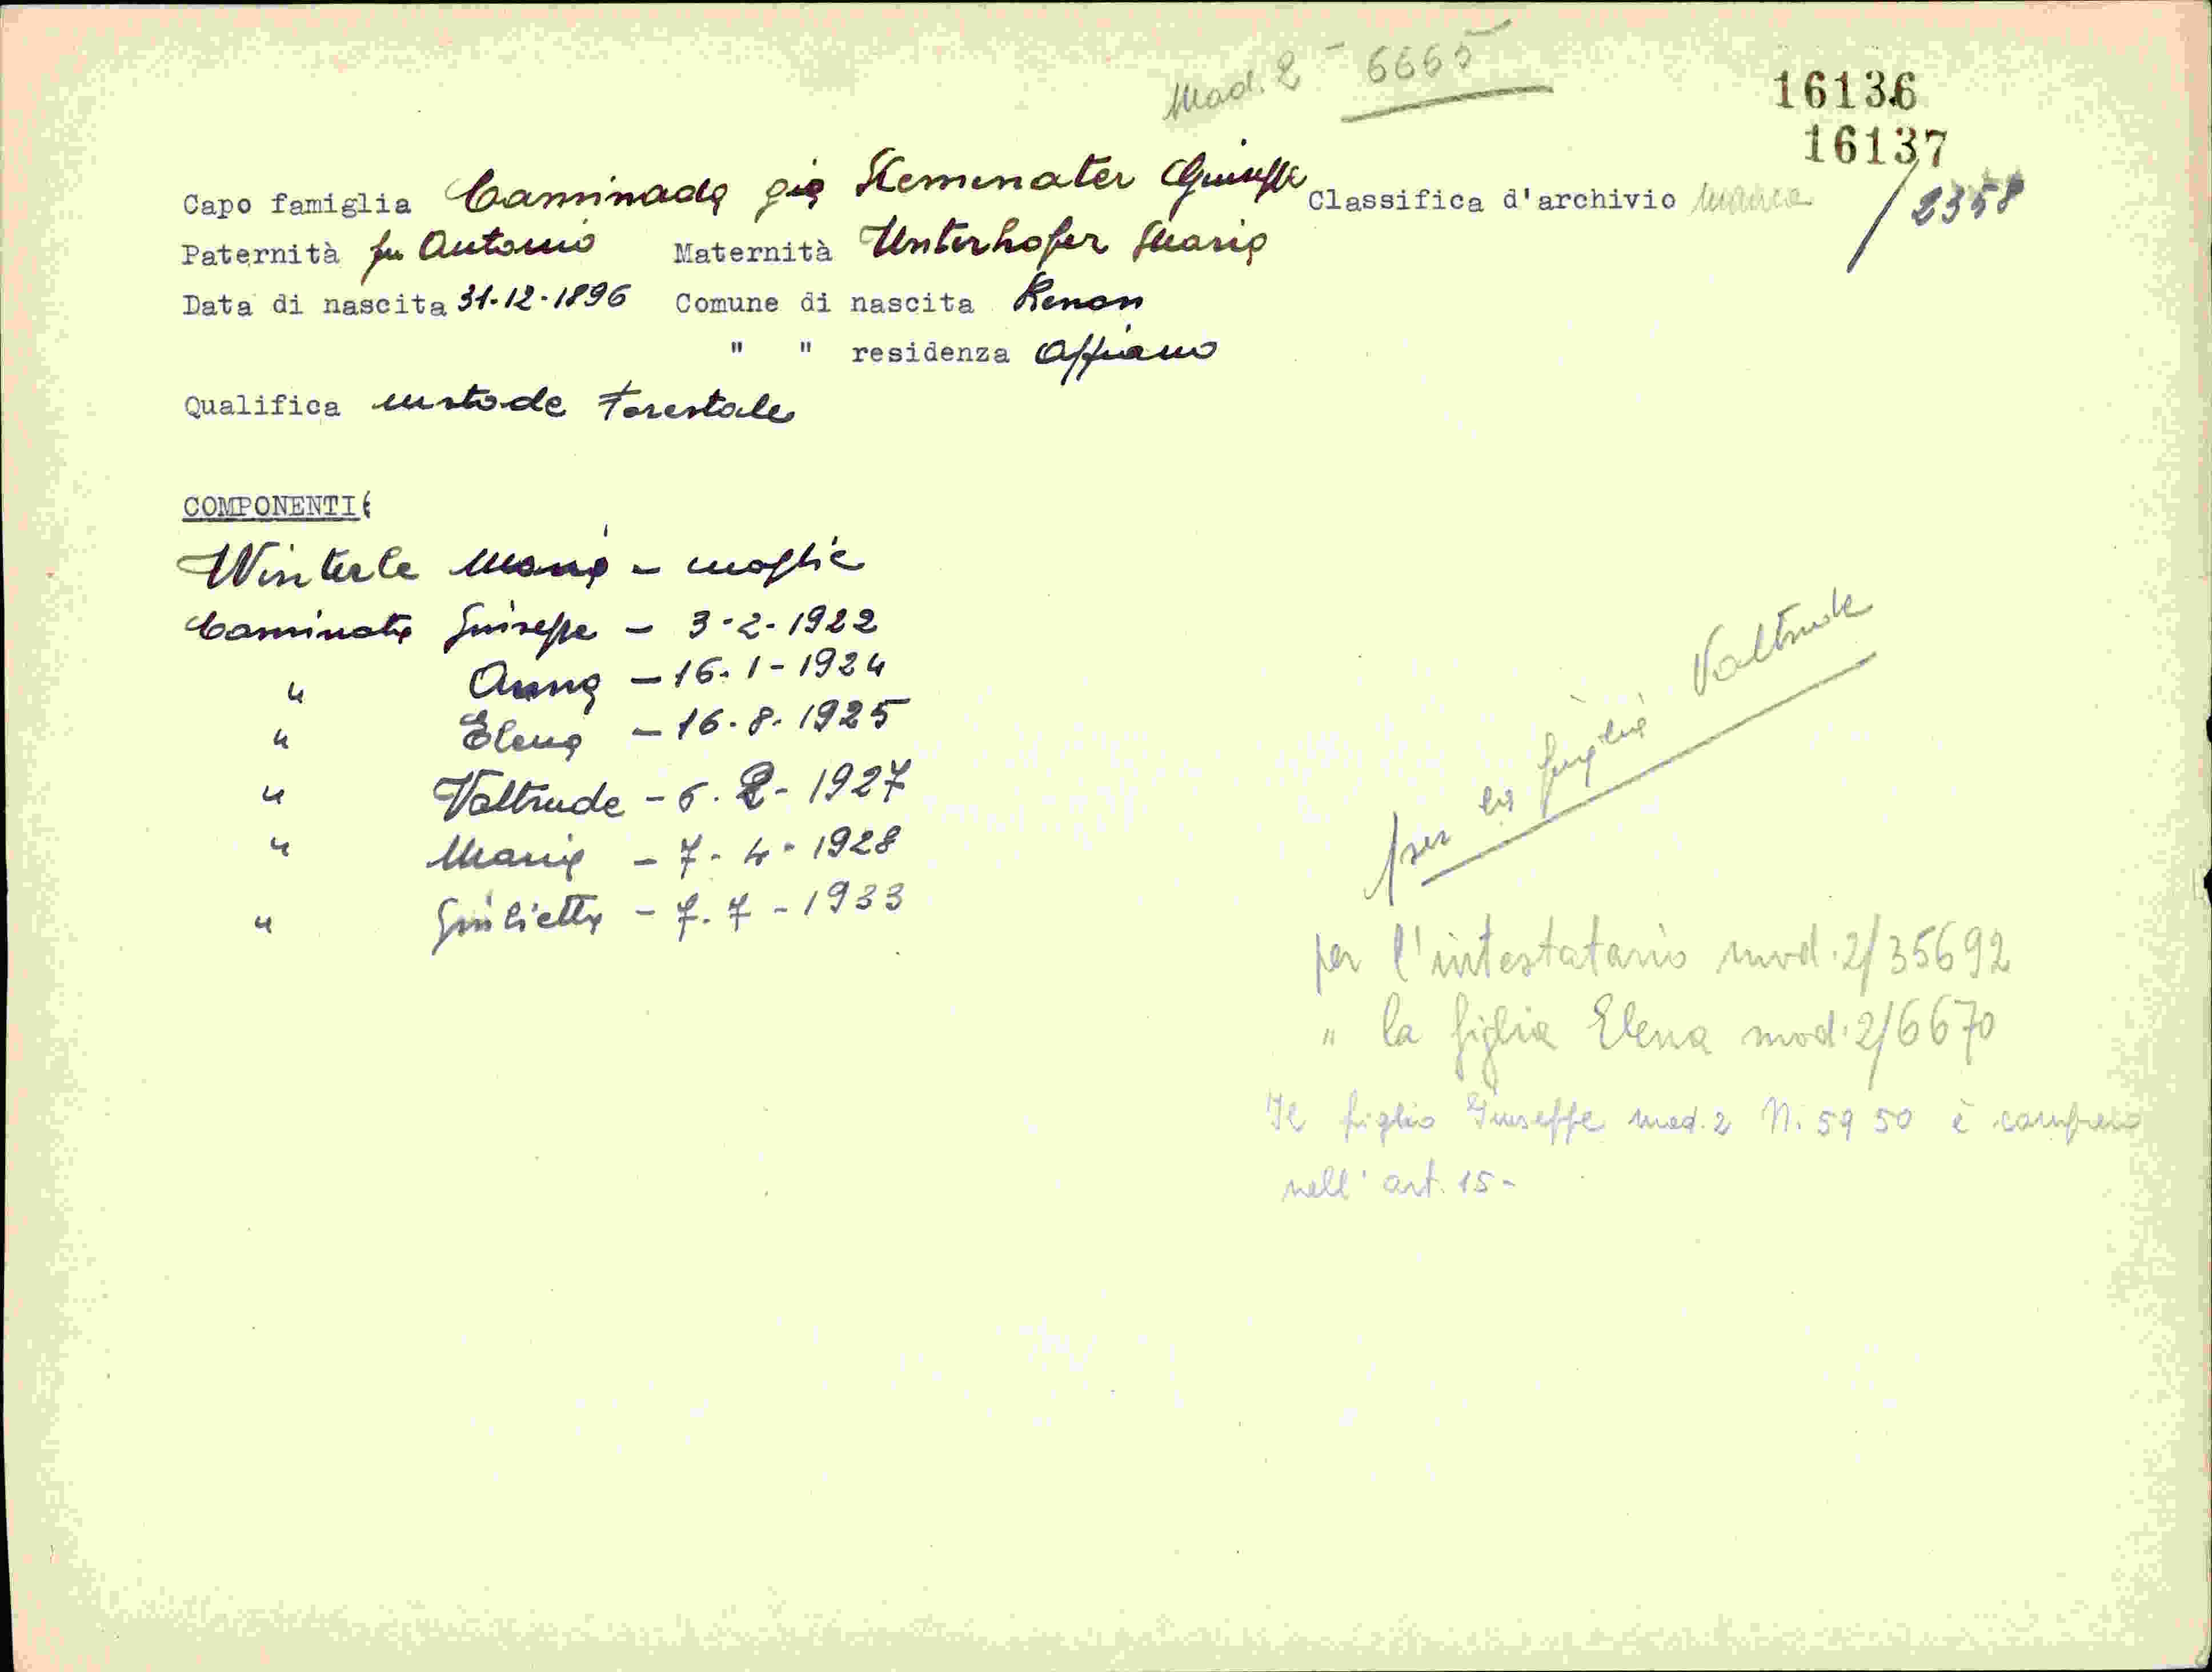 Mod. 2 - 6665
16136
16137
Capo famiglia Caminada già Kemenater Giuseppe Classifica d'archivio manca / 2358
Paternità fu Antonio Maternità Unterhofer Maria
Data di nascita 31-12-1896 Comune di nascita Renon
" " residenza Appiano
Qualifica custode Forestale
COMPONENTI:
Winterle Maria - moglie
Caminata Giuseppe - 3-2-1922
" Anna - 16-1-1924
" Elena - 16-8-1925
" Valtrude - 6-2-1927
" Maria - 7-4-1928
" Giulietta - 7-7-1933
per la figlia Valtrude
per l'intestatario mod.2/35692
" la figlia Elena mod.2/6670
Il figlio Giuseppe mod.2 N. 5950 è compreso
nell'art. 15-